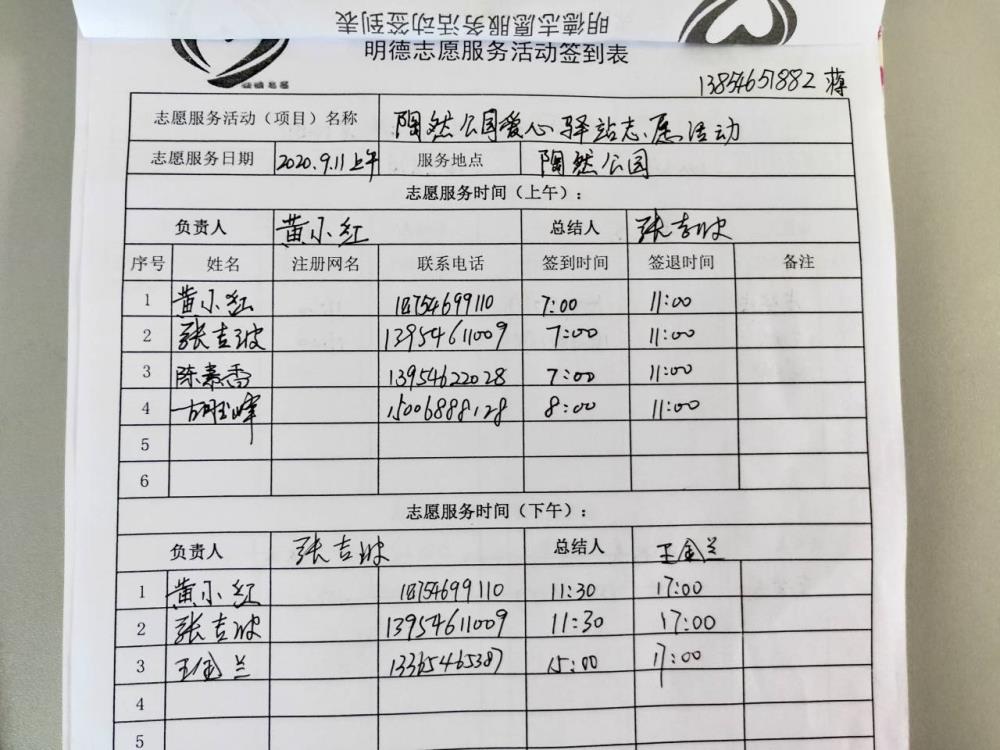 明德志愿服务活动签到表
明德志愿服务活动签到表
13854651882 蒋
志愿服务活动（项目）名称 陶然公园爱心驿站志愿活动
志愿服务日期 2020.9.11上午 服务地点 陶然公园
志愿服务时间（上午）：
负责人 黄小红 总结人 张吉波
序号 姓名 注册网名 联系电话 签到时间 签退时间 备注
1 黄小红 18754699110 7:00 11:00
2 张吉波 13954611009 7:00 11:00
3 陈素香 13954622028 7:00 11:00
4 15006888128 8:00 11:00
5
6
志愿服务时间（下午）：
负责人 张吉波 总结人 王金兰
1 黄小红 18754699110 11:30 17:00
2 张吉波 13954611009 11:30 17:00
3 王金兰 13365465387 15:00 17:00
4
5